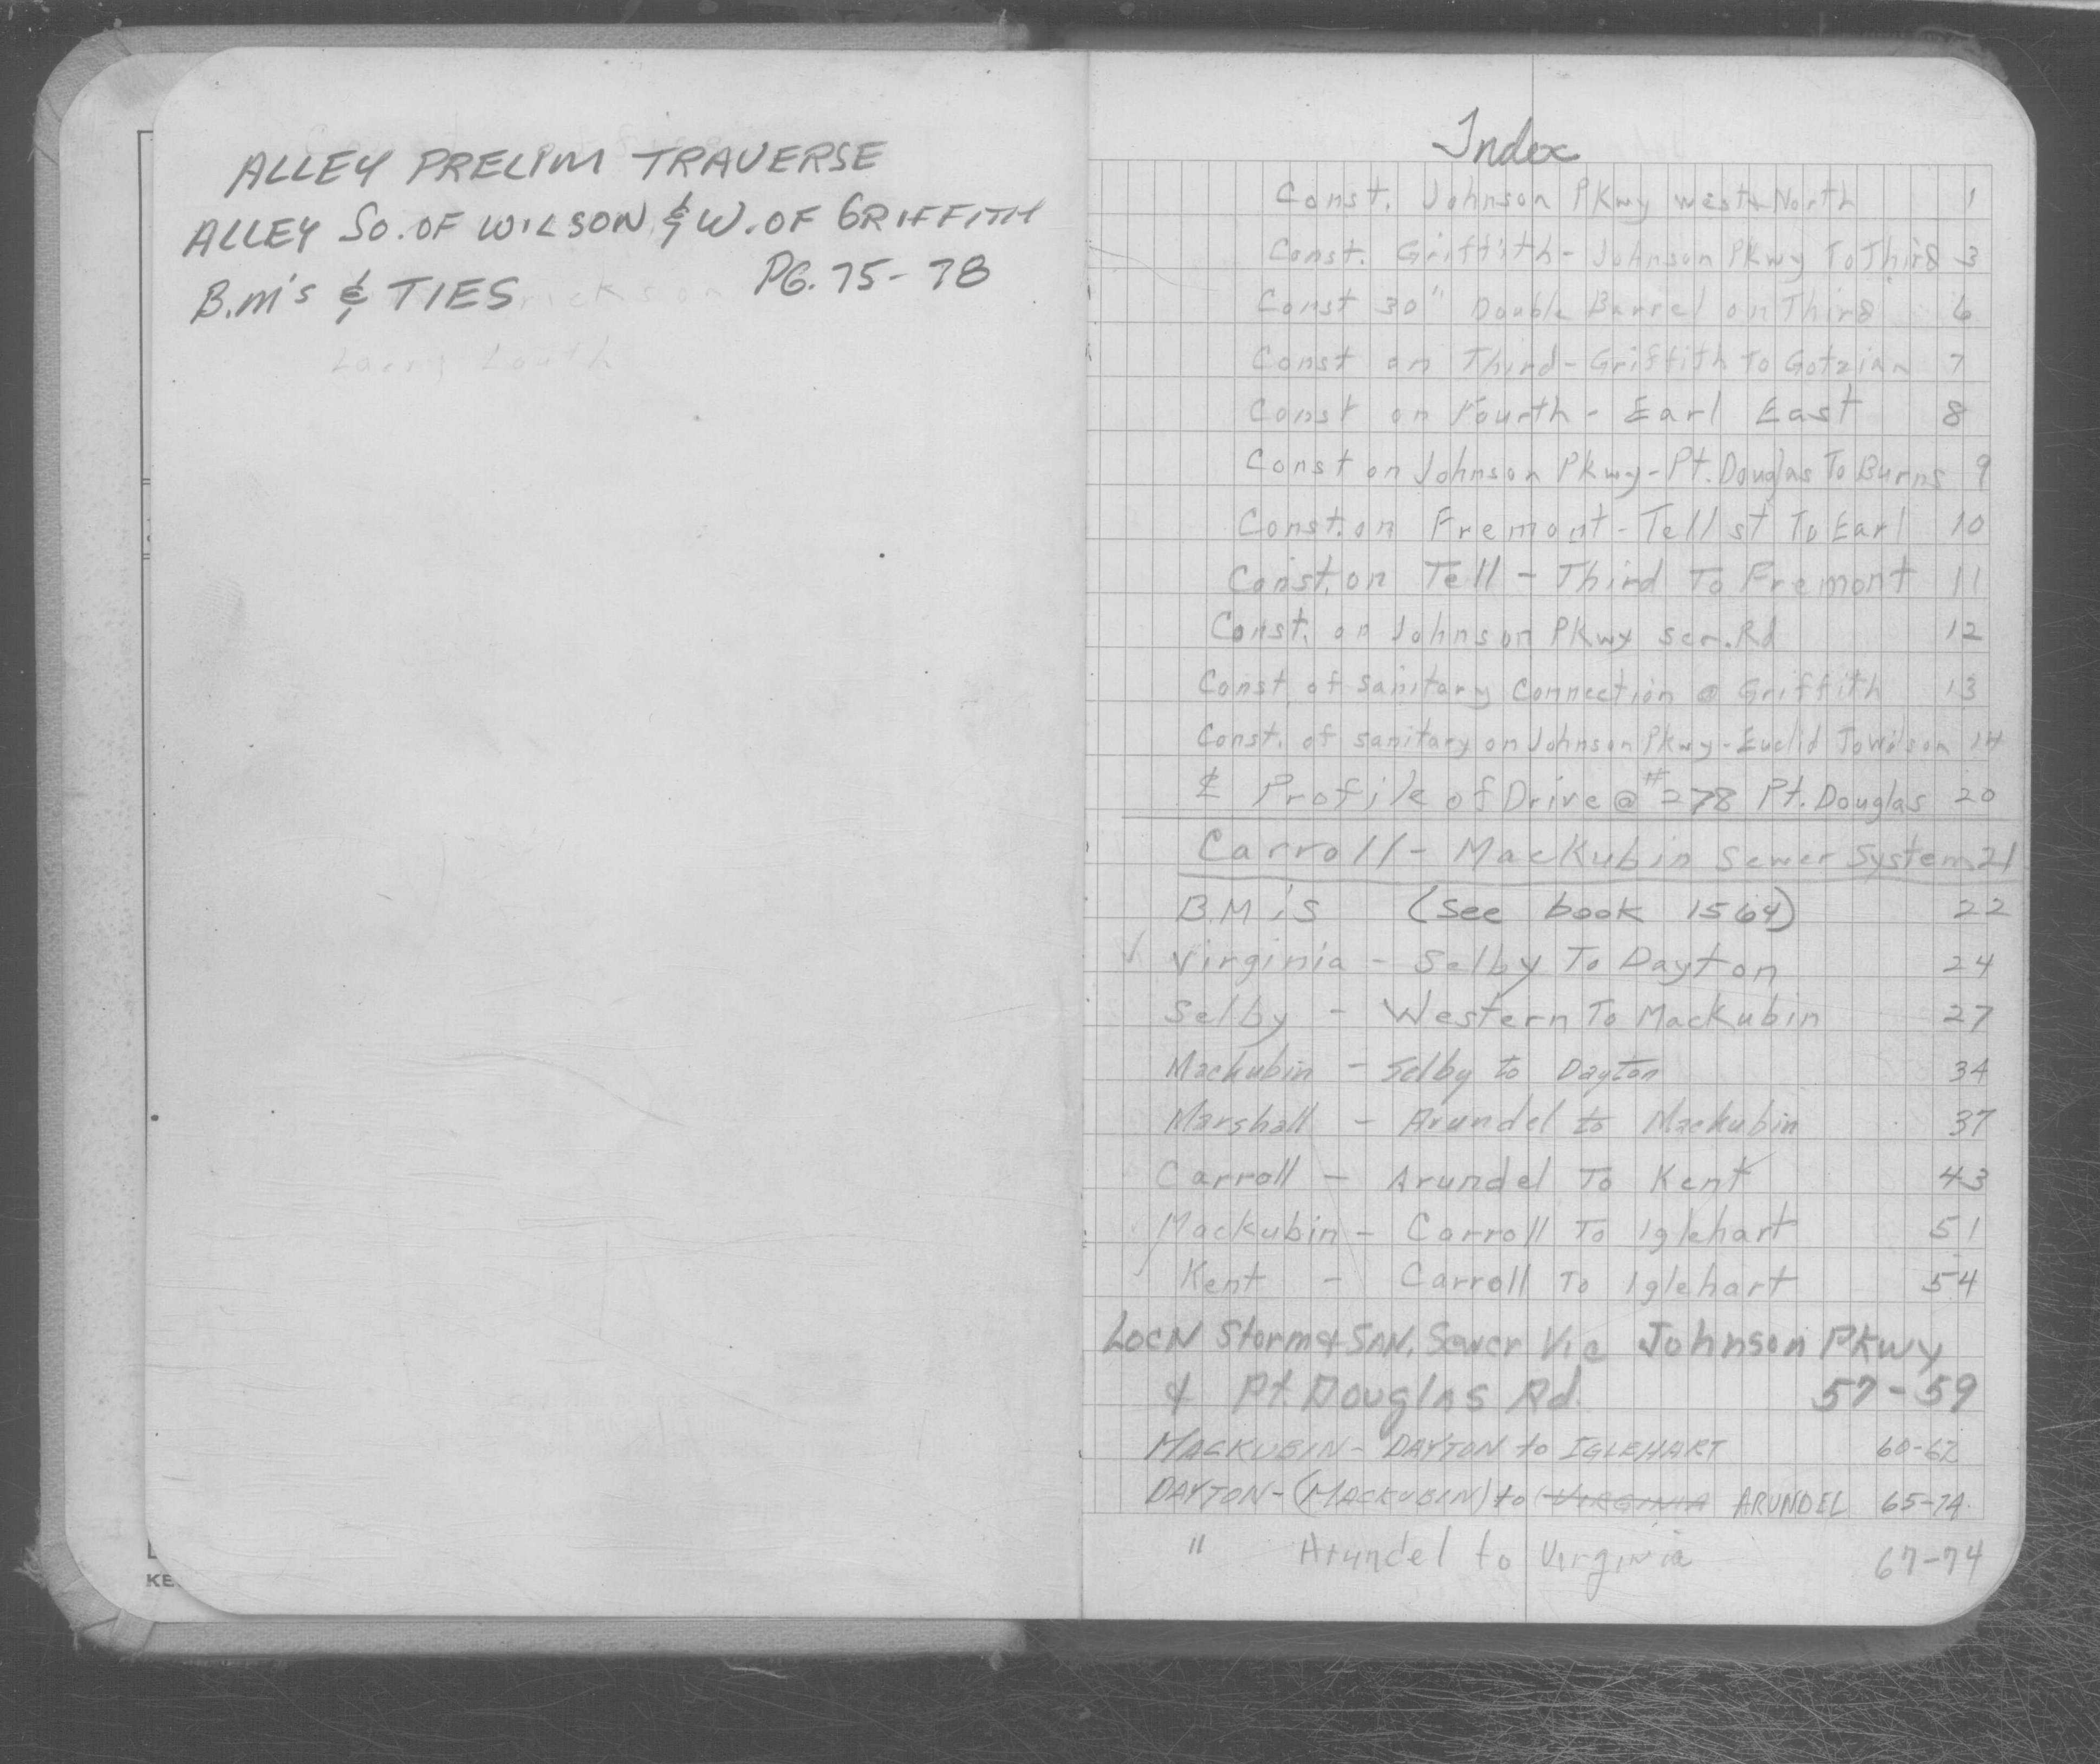 ALLEY PRELIM TRAVERSE
ALLEY SO. OF WILSON & W. OF GRIFFITH
B.M's & TIES PG. 75-78
Index
Const. Johnson Pkwy west & North 1
Const. Griffith - Johnson Pkwy To Third 3
Const 30" Double Barrel on Third 6
Const on Third - Griffith To Gotzian 7
Const on Fourth - Earl East 8
Const on Johnson Pkwy - Pt. Douglas To Burns 9
Const. on Fremont - Tell st To Earl 10
Const. on Tell - Third To Fremont 11
Const. on Johnson Pkwy ser. Rd 12
Const. of sanitary Connection @ Griffith 13
Const. of sanitary on Johnson Pkwy - Euclid To Wilson 14
℄ Profile of Drive @ #278 Pt. Douglas 20
Carroll - Mackubin Sewer System 21
B.M's (see book 1564) 22
✓ Virginia - Selby To Dayton 24
Selby - Western To Mackubin 27
Mackubin - Selby to Dayton 34
Marshall - Arundel to Mackubin 37
Carroll - Arundel To Kent 43
Mackubin - Carroll To Iglehart 51
Kent - Carroll To Iglehart 54
LOCN Storm & SAN. Sewer Vic Johnson Pkwy
& Pt. Douglas Rd. 57-59
MACKUBIN - DAYTON to IGLEHART 60-62
DAYTON - (MACKUBIN) to VIRGINIA ARUNDEL 65-74
" Arundel to Virginia 67-74
KE